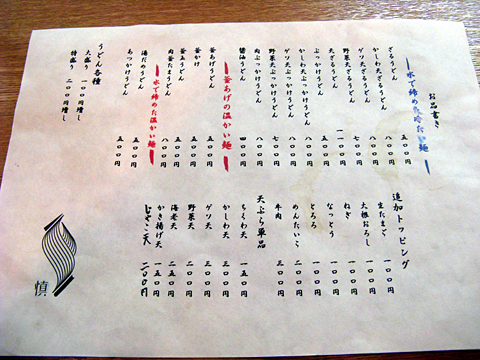 お品書き
水で締めた冷たい麺
ざるうどん 五〇〇円
かしわ天ざるうどん 八〇〇円
ゲソ天ざるうどん 八〇〇円
野菜天ざるうどん 七〇〇円
天ざるうどん 一一〇〇円
ぶっかけうどん 五〇〇円
かしわ天ぶっかけうどん 八〇〇円
ゲソ天ぶっかけうどん 八〇〇円
野菜天ぶっかけうどん 七〇〇円
肉ぶっかけうどん 八〇〇円
醤油うどん 四〇〇円
釜あげの温かい麺
釜あげうどん 五〇〇円
釜かけ 五〇〇円
釜玉うどん 五〇〇円
肉釜たまうどん 八〇〇円
水で締めた温かい麺
湯だめうどん 五〇〇円
あつかけうどん 五〇〇円
うどん各種
大盛り 一〇〇円増し
特盛り 二〇〇円増し
追加トッピング
生たまご 一〇〇円
大根おろし 一〇〇円
ねぎ 一〇〇円
なっとう 一〇〇円
とろろ 一〇〇円
めんたいこ 二〇〇円
牛肉 三〇〇円
天ぷら単品
ちくわ天 一五〇円
かしわ天 三〇〇円
ゲソ天 三〇〇円
野菜天 二〇〇円
海老天 二五〇円
かき揚げ天 一五〇円
じゃこ天 二〇〇円
慎